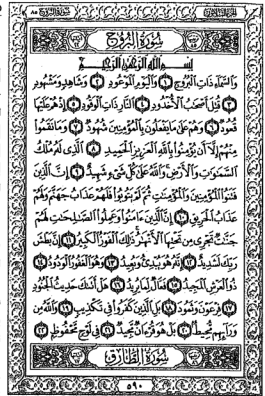 سُورَةُ الْبُرُوجِ
بِسْمِ اللَّهِ الرَّحْمَٰنِ الرَّحِيمِ
وَالسَّمَاءِ ذَاتِ الْبُرُوجِ ١ وَالْيَوْمِ الْمَوْعُودِ ٢ وَشَاهِدٍ وَمَشْهُودٍ
٣ قُتِلَ أَصْحَابُ الْأُخْدُودِ ٤ النَّارِ ذَاتِ الْوَقُودِ ٥ إِذْ هُمْ عَلَيْهَا
قُعُودٌ ٦ وَهُمْ عَلَىٰ مَا يَفْعَلُونَ بِالْمُؤْمِنِينَ شُهُودٌ ٧ وَمَا نَقَمُوا
مِنْهُمْ إِلَّا أَن يُؤْمِنُوا بِاللَّهِ الْعَزِيزِ الْحَمِيدِ ٨ الَّذِي لَهُ مُلْكُ
السَّمَاوَاتِ وَالْأَرْضِ وَاللَّهُ عَلَىٰ كُلِّ شَيْءٍ شَهِيدٌ ٩ إِنَّ الَّذِينَ
فَتَنُوا الْمُؤْمِنِينَ وَالْمُؤْمِنَاتِ ثُمَّ لَمْ يَتُوبُوا فَلَهُمْ عَذَابُ جَهَنَّمَ وَلَهُمْ
عَذَابُ الْحَرِيقِ ١٠ إِنَّ الَّذِينَ آمَنُوا وَعَمِلُوا الصَّالِحَاتِ لَهُمْ
جَنَّاتٌ تَجْرِي مِن تَحْتِهَا الْأَنْهَارُ ذَٰلِكَ الْفَوْزُ الْكَبِيرُ ١١ إِنَّ بَطْشَ
رَبِّكَ لَشَدِيدٌ ١٢ إِنَّهُ هُوَ يُبْدِئُ وَيُعِيدُ ١٣ وَهُوَ الْغَفُورُ الْوَدُودُ ١٤
ذُو الْعَرْشِ الْمَجِيدُ ١٥ فَعَّالٌ لِّمَا يُرِيدُ ١٦ هَلْ أَتَاكَ حَدِيثُ الْجُنُودِ
١٧ فِرْعَوْنَ وَثَمُودَ ١٨ بَلِ الَّذِينَ كَفَرُوا فِي تَكْذِيبٍ ١٩ وَاللَّهُ مِن
وَرَائِهِم مُّحِيطٌ ٢٠ بَلْ هُوَ قُرْآنٌ مَّجِيدٌ ٢١ فِي لَوْحٍ مَّحْفُوظٍ ٢٢
سُورَةُ الطَّارِقِ
٥٩٠